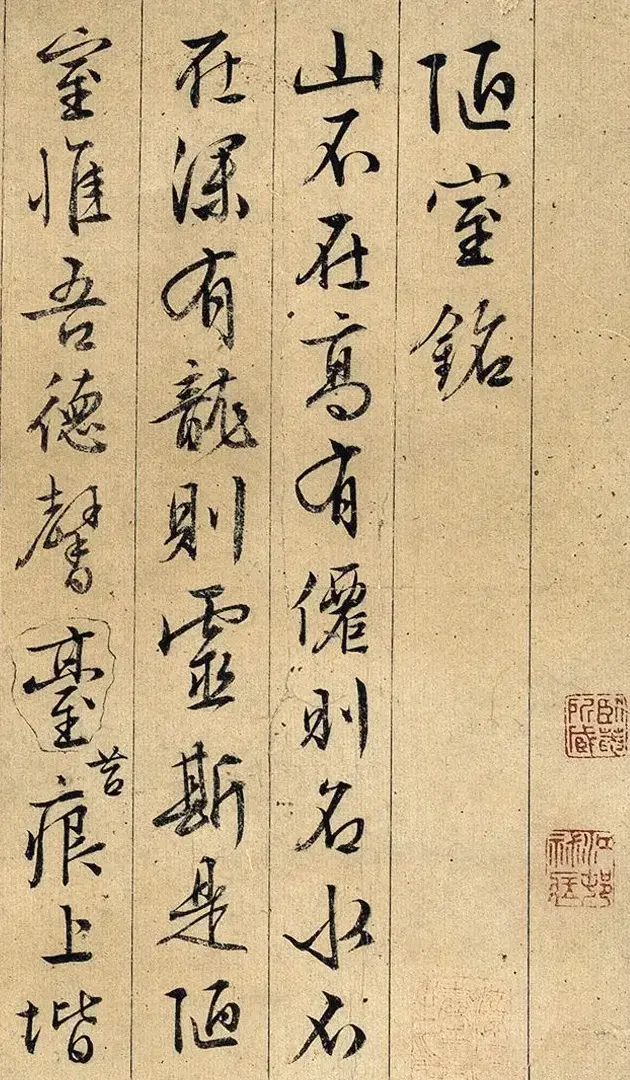 陋室銘
山不在高有僊則名水不
在深有龍則靈斯是陋
室惟吾德馨臺苔痕上堦
臥菴所藏